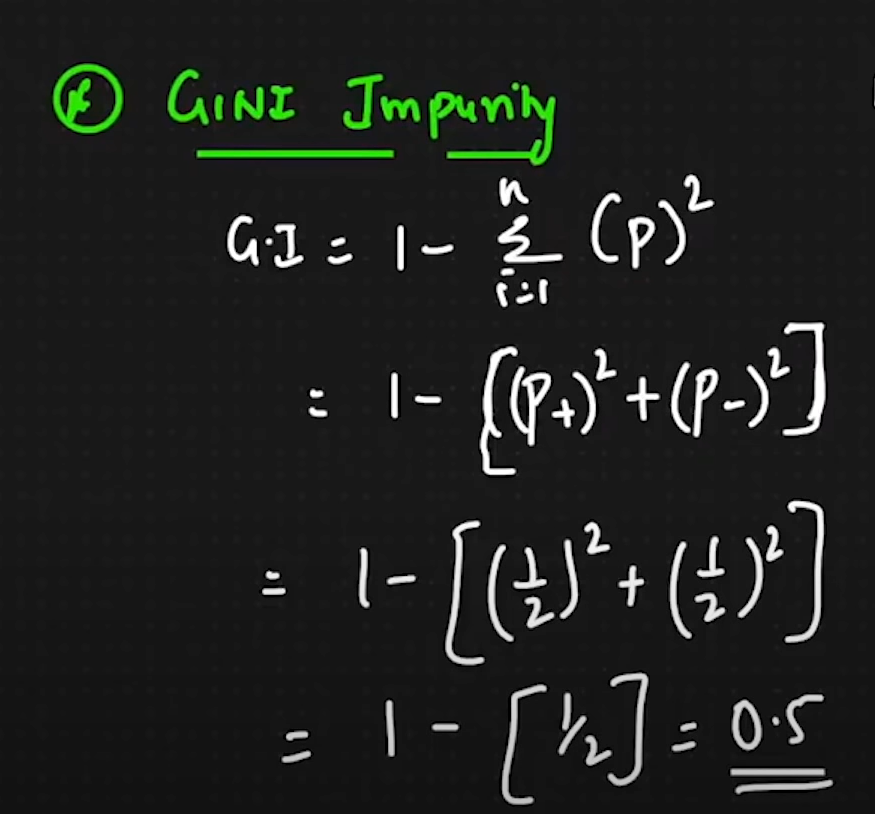 * GINI Impurity
G.I = 1 - n Σ i=1 (p)²
= 1 - [(P+)² + (P-)²]
= 1 - [(1/2)² + (1/2)²]
= 1 - [1/2] = 0.5